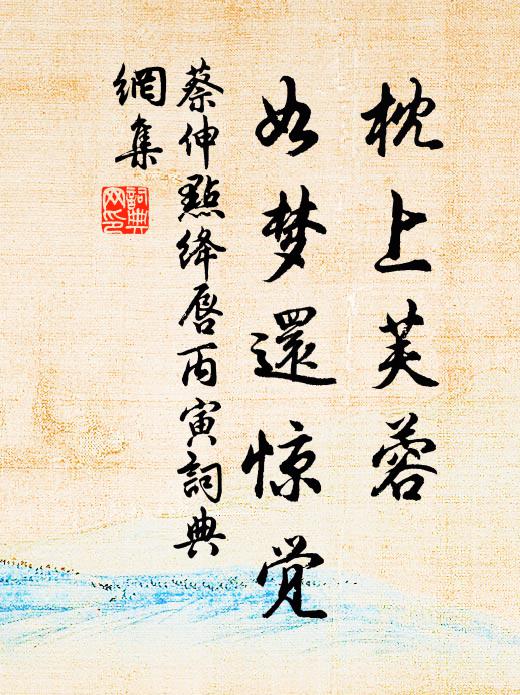 枕上芙蓉
如梦還惊觉
蔡伸點绛唇丙寅詞典
網集
詞典網印